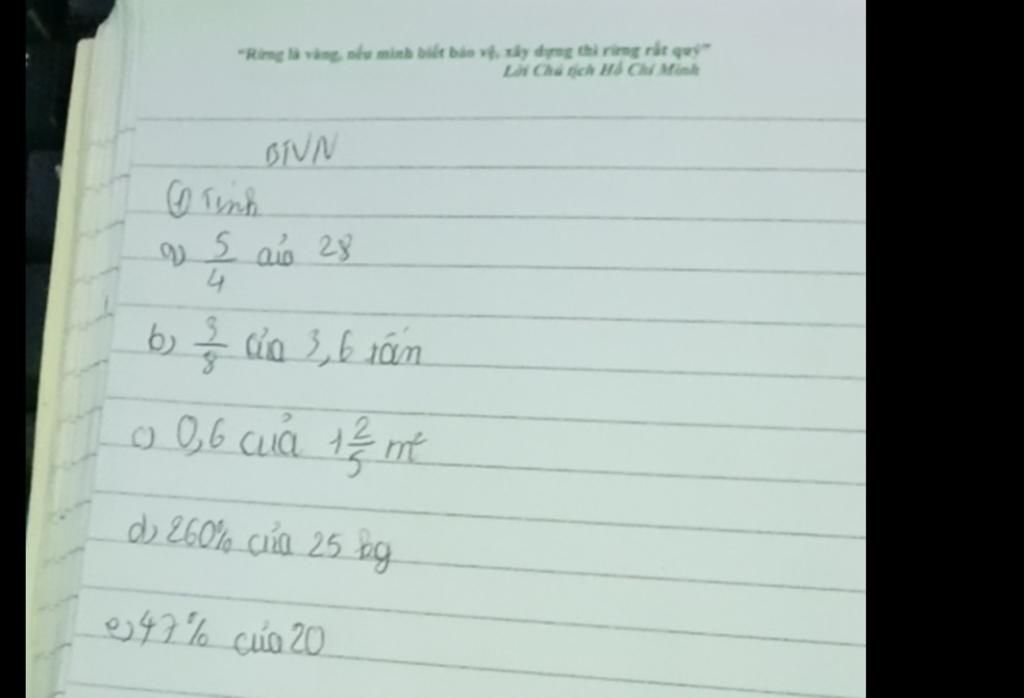 "Rừng là vàng, nếu mình biết bảo vệ, xây dựng thì rừng rất quý"
Lời Chủ tịch Hồ Chí Minh
BTVN
① Tính
a) 5/4 của 28
b) 3/8 của 3,6 tấn
c) 0,6 của 1 2/5 m²
d) 260% của 25 kg
e) 47% của 20